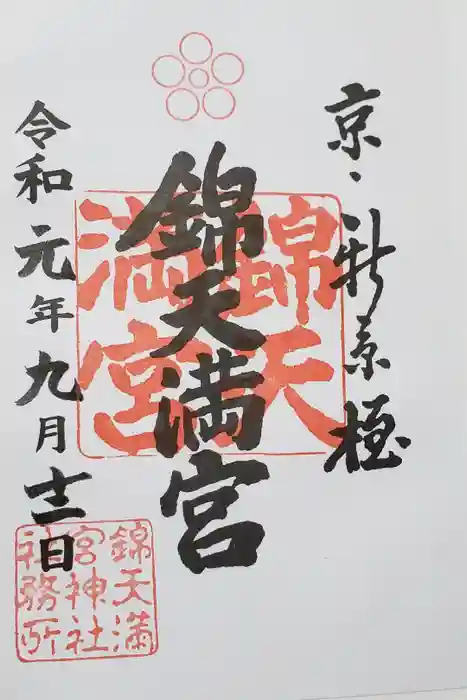 京・新京極
錦天満宮
令和元年九月十二日
錦天
満宮
錦天満
宮神社
社務所